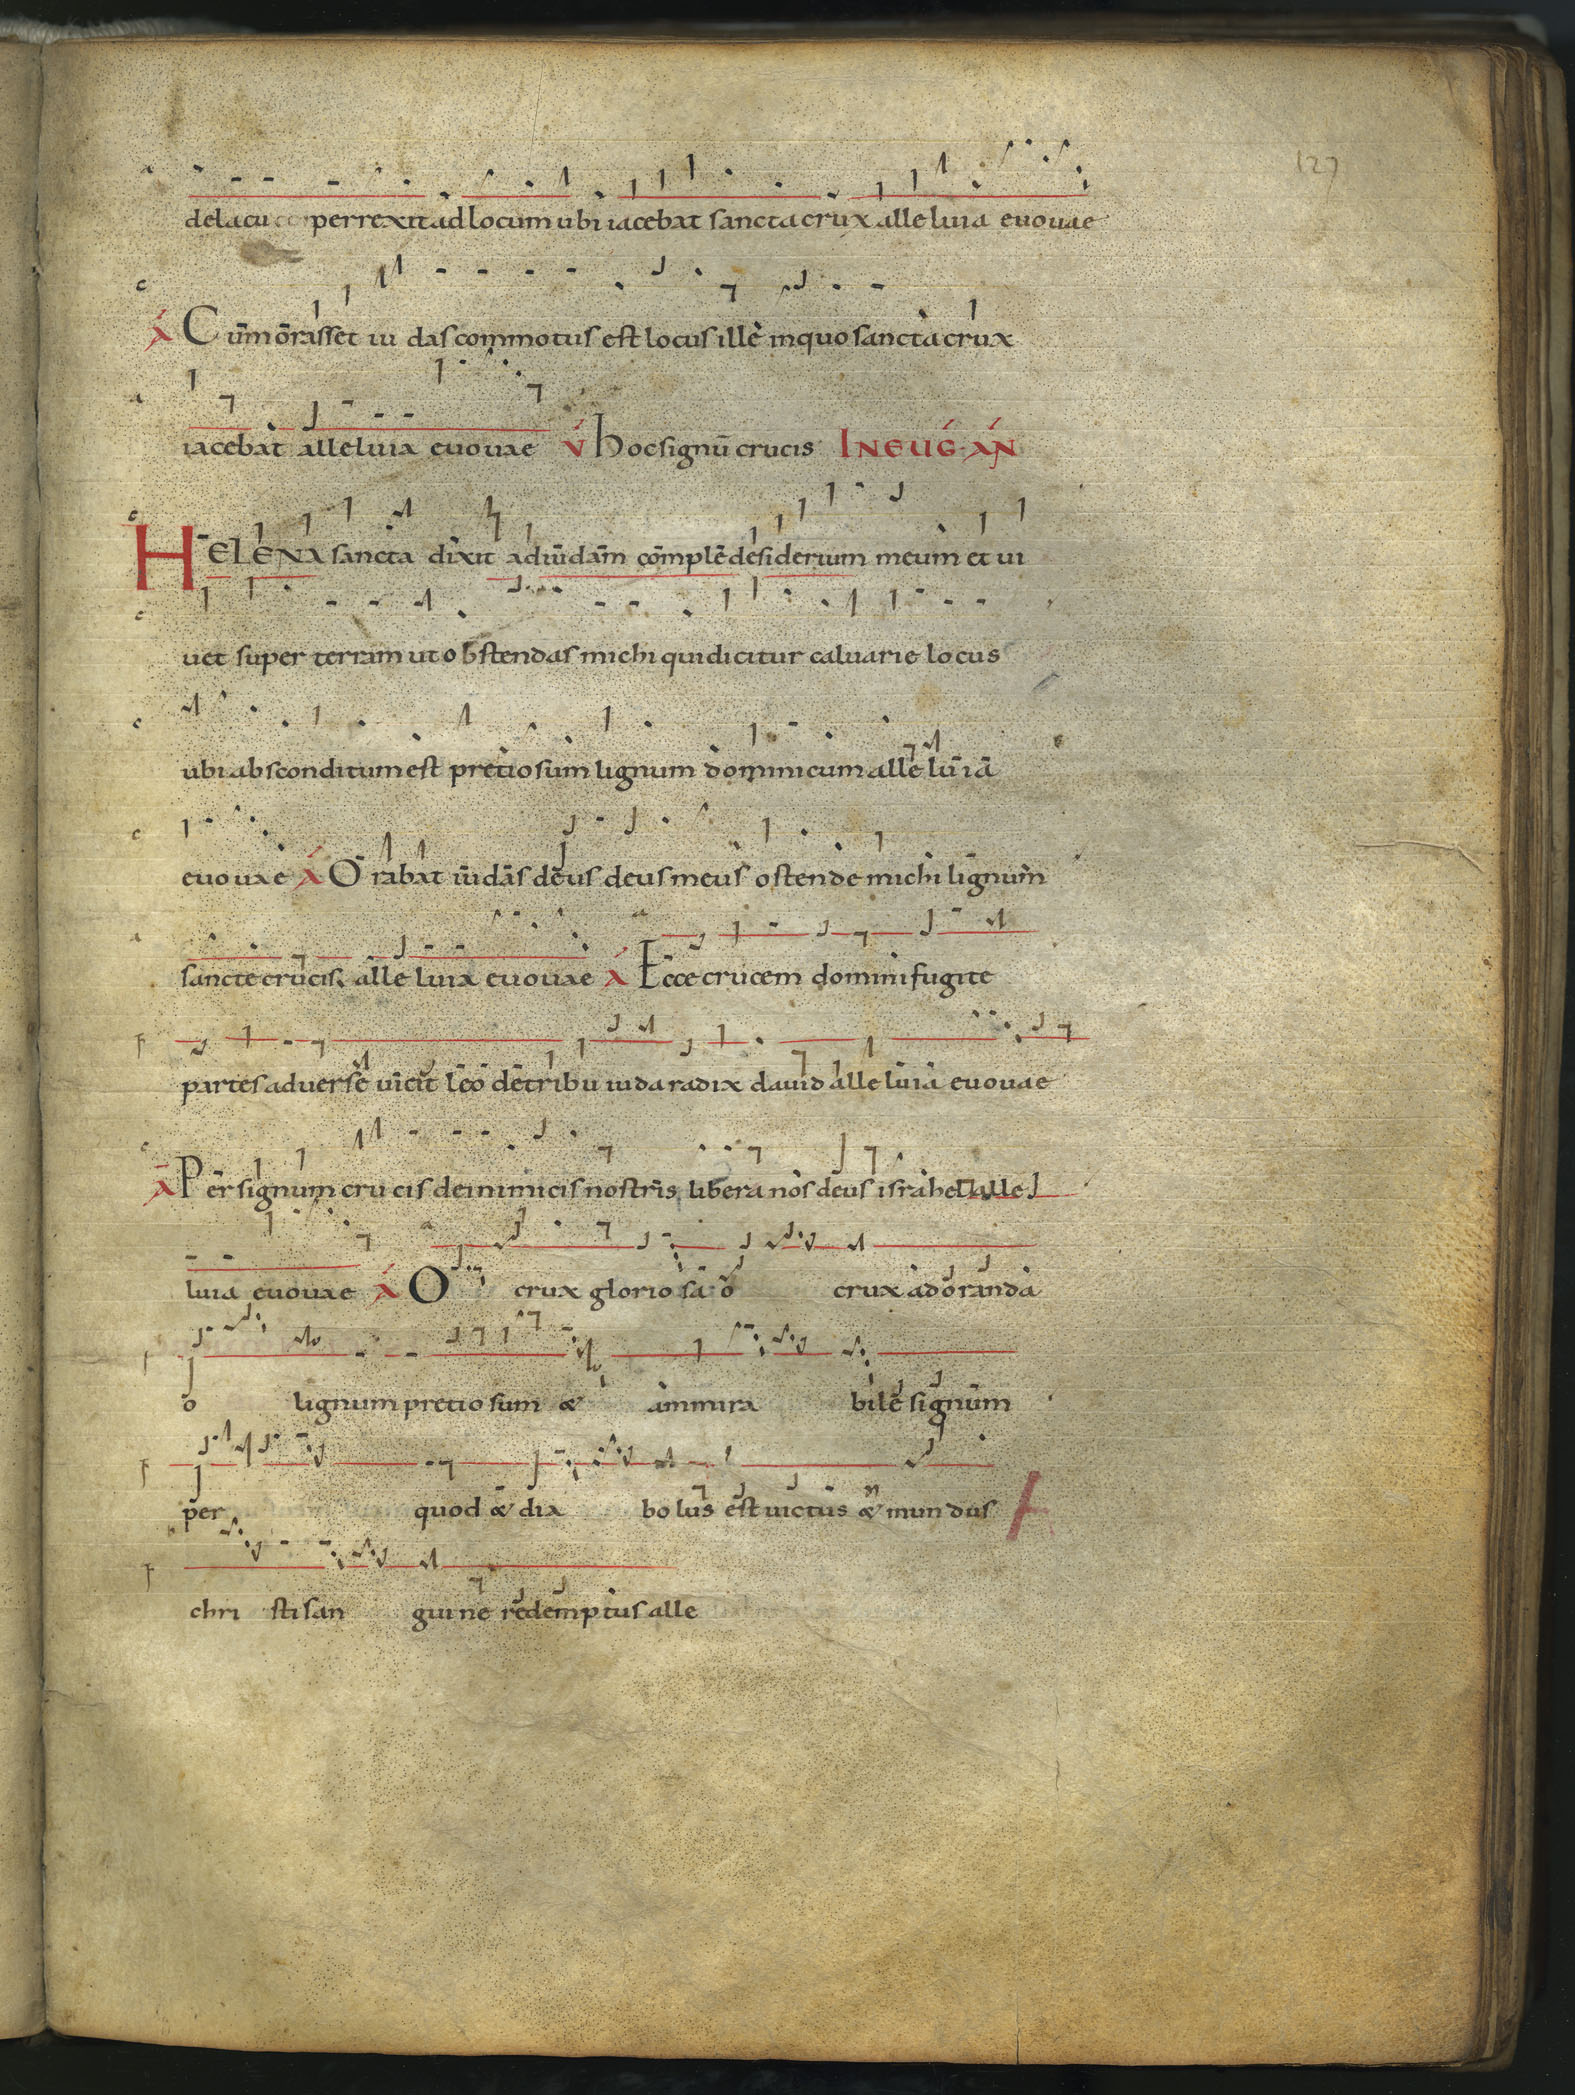 127
de lacu perrexit ad locum ubi iacebat sancta crux alleluia euouae
A Cum orasset iudas commotus est locus ille in quo sancta crux
iacebat alleluia euouae V Hoc signū crucis IN EUG AN
HELENA sancta dixit ad iudam comple desiderium meum et ui
uet super terram ut obstendas michi qui dicitur caluarie locus
ubi absconditum est pretiosum lignum dominicum alleluia
euouae A Orabat iudas deus deus meus ostende michi lignum
sancte crucis alleluia euouae A Ecce crucem domini fugite
partes aduerse uicit leo de tribu iuda radix dauid alleluia euouae
A Per signum crucis de inimicis nostris libera nos deus israhel alle
luia euouae A O crux gloriosa o crux adoranda
o lignum pretiosum & ammirabile signum
per quod & diabolus est uictus & mundus
christi sanguine redemptus alle